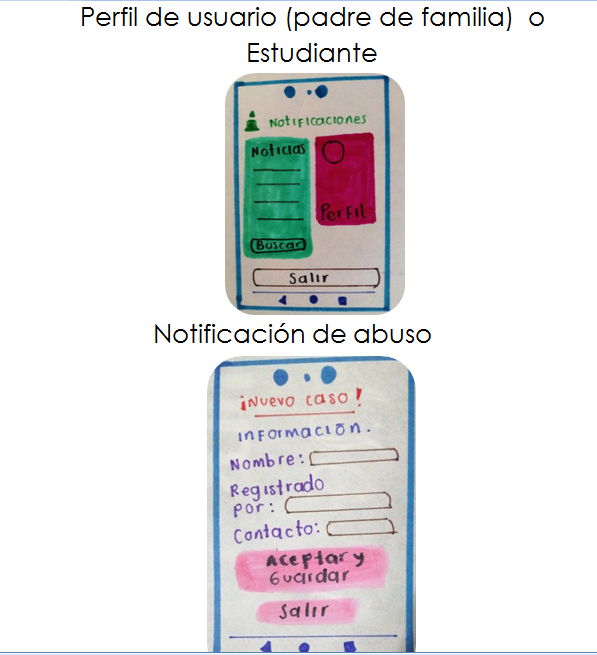 Perfil de usuario (padre de familia) o
Estudiante
Notificaciones
Noticias
Perfil
Buscar
Salir
Notificación de abuso
¡Nuevo caso!
Información.
Nombre:
Registrado
por:
Contacto:
Aceptar y
Guardar
Salir